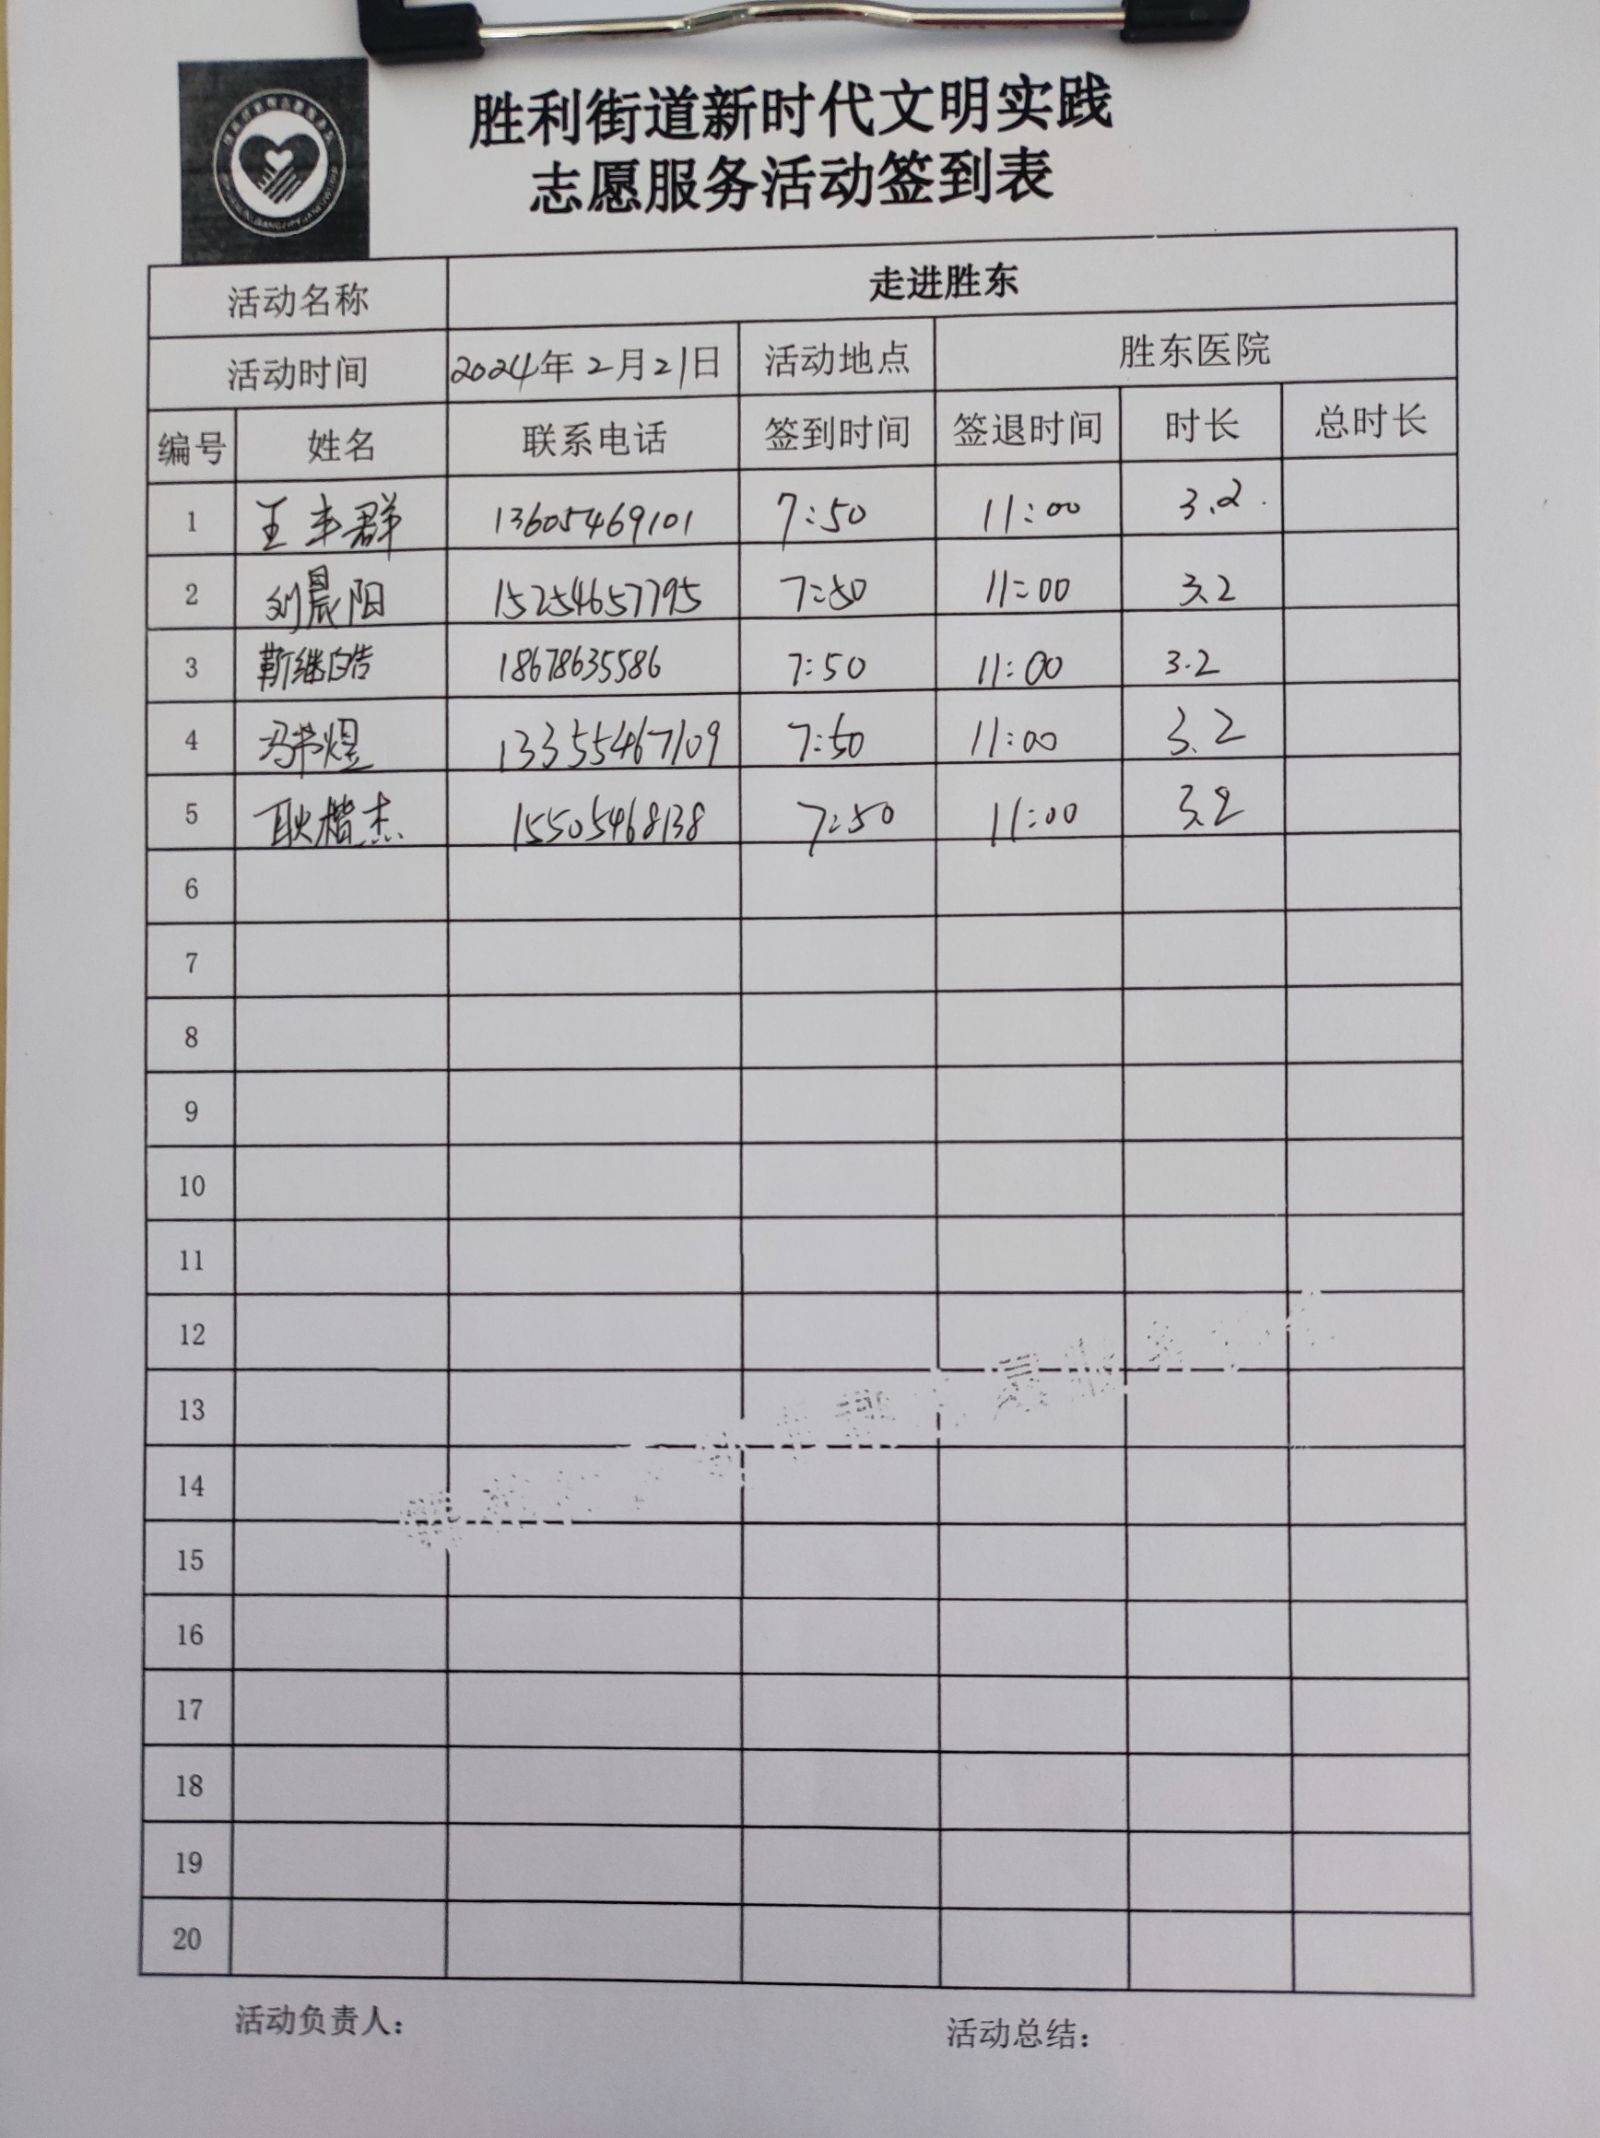 胜利街道新时代文明实践
志愿服务活动签到表
活动名称 走进胜东
活动时间 2024年2月21日 活动地点 胜东医院
编号 姓名 联系电话 签到时间 签退时间 时长 总时长
1 王丰群 13605469101 7:50 11:00 3.2
2 刘晨阳 15254657795 7:50 11:00 3.2
3 靳继皓 18678635586 7:50 11:00 3.2
4 冯书煜 13355467109 7:50 11:00 3.2
5 耿楷杰 15505468138 7:50 11:00 3.2
6
7
8
9
10
11
12
13
14
15
16
17
18
19
20
活动负责人: 活动总结: